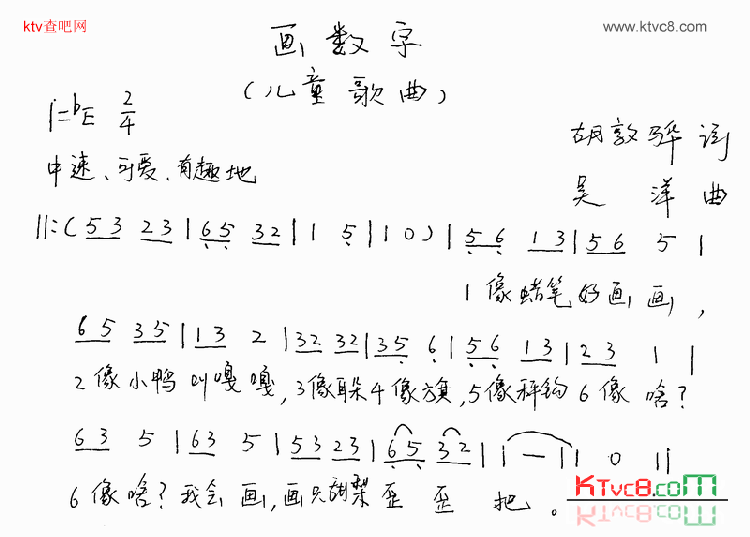 ktv查吧网
www.ktvc8.com
画数字
(儿童歌曲)
1=♭E 2/4
胡敦骅 词
中速、可爱、有趣地
吴 洋 曲
||:( 5 3 2 3 | 6 5 3 2 | 1 5 | 1 0 ) | 5 6 1 3 | 5 6 5 |
1像蜡笔好画画,
6 5 3 5 | 1 3 2 | 3 2 3 2 | 3 5 6 | 5 6 1 3 | 2 3 1 |
2像小鸭叫嘎嘎,3像耳朵4像旗,5像秤钩6像啥?
6 3 5 | 6 3 5 | 5 3 2 3 | 6 5 3 2 | 1 — | 1 0 ||
6像啥?我会画,画只 歪歪把。
KTvc8.com